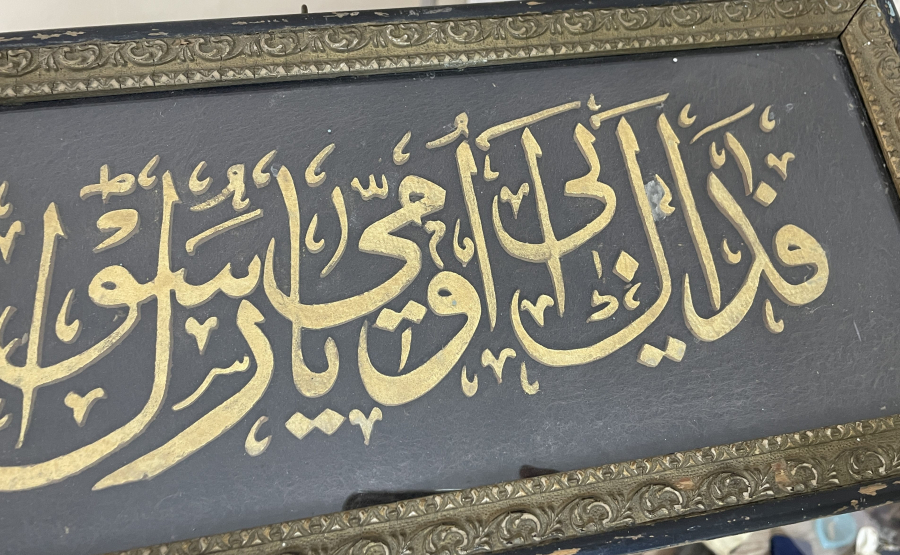 فداك أبي وأمي يا رسول